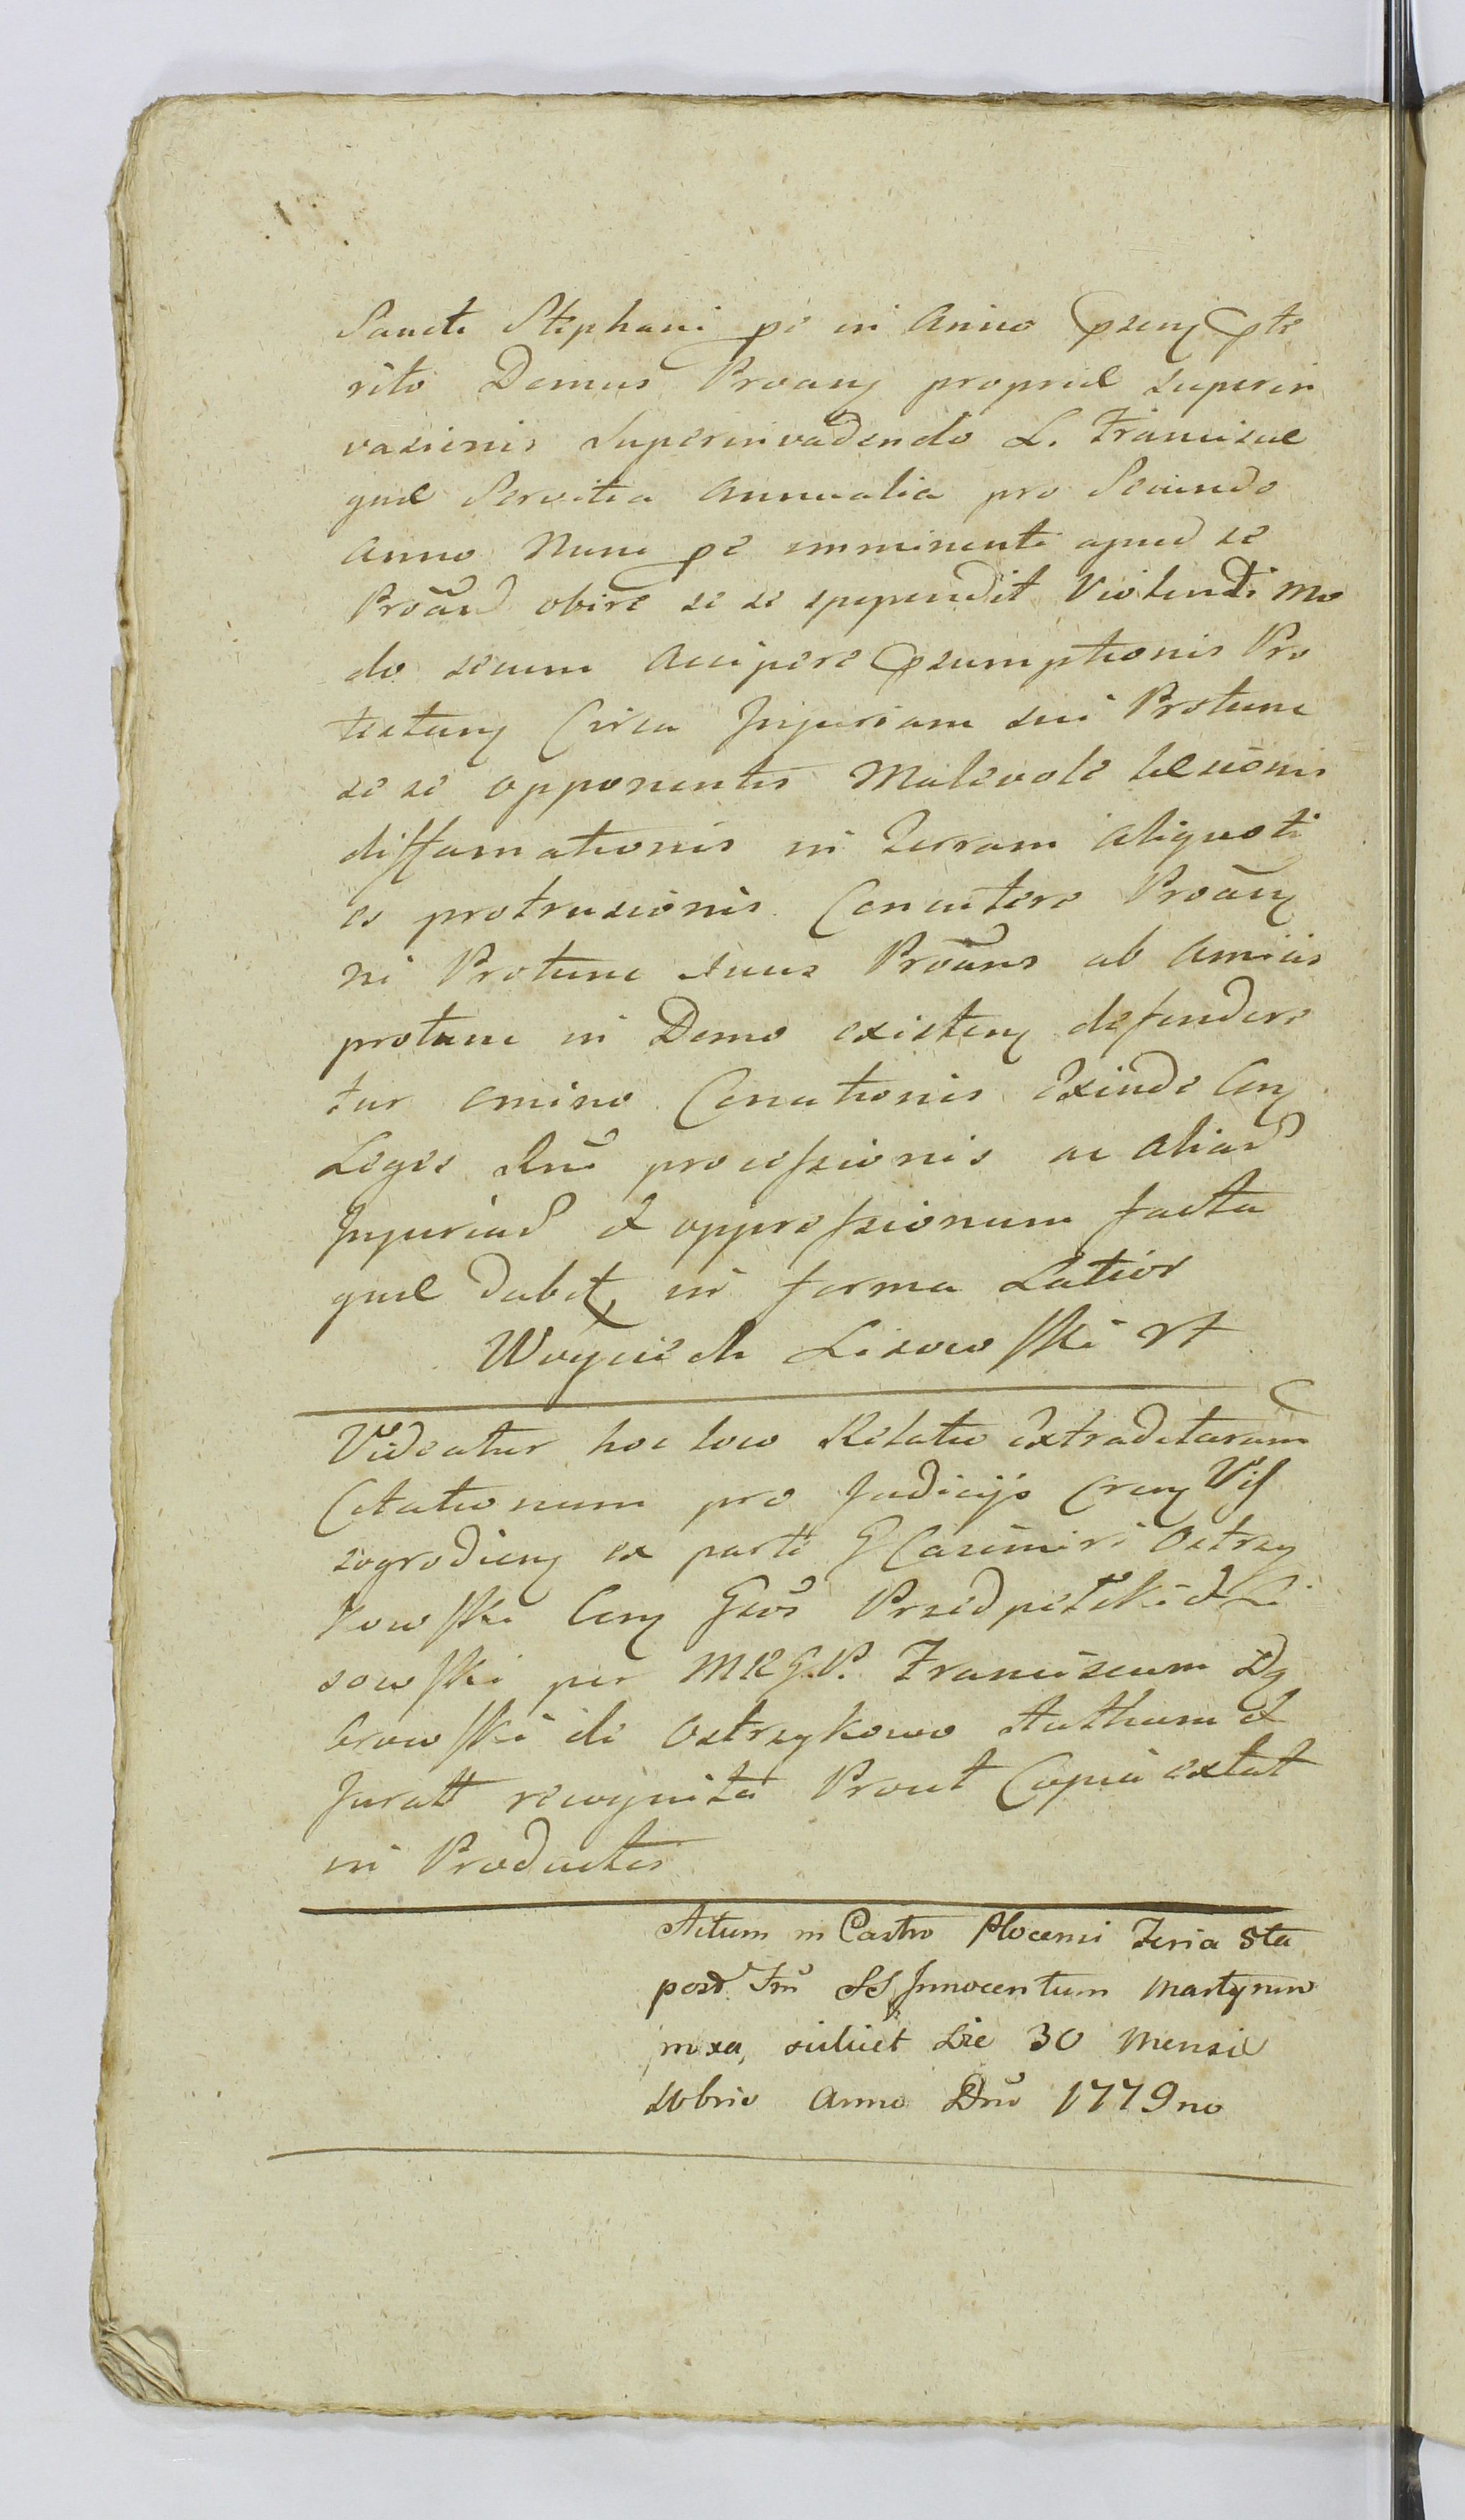 Sancti Stephani pe in Anno psenӡ pte
rito Domus Proanӡ propriæ superin
vasionis superinvadendo L. Franciscæ
quæ Servitia Annualia pro Secundo
anno Nunc pe imminenti apud se
Proãn obire se se spependit Violenti Mo
do secum accipere psumptionis Pro
testanӡ Circa Injuriam sui Protunc
sese opponentis Malevole læsionis
diffamationis in Terram aliquoti
es protrusionis Concutere Proãnӡ
ni Protunc suus Proãns ab amicis
protunc in Domo existenӡ defendere
tur omino Conationis Exinde Conӡ
Leges Rni processionis ac aliar
Injuriar et oppressionum facta
quæ dabit in forma Latior
Woyciech Lisowski
Videatur hoc loco Relatio Extraditarum
Citationum pro Judicijs Crenӡ Vis
sogrodienӡ ex parte G Casimiri Ostrzy
kowski Conӡ Gsos Przedpełski et Li
sowski per MRGP. Franciscum Dą
browski de Ostrzykowo Authum et
Juratt recognita Prout Copia extat
in Productis
Actum in Castro Plocensi Feria 5ta
post Fm SS Innocentum Martyrum
inxa, scilicet Die 30 Mensis
Xbris Anno Dni 1779no